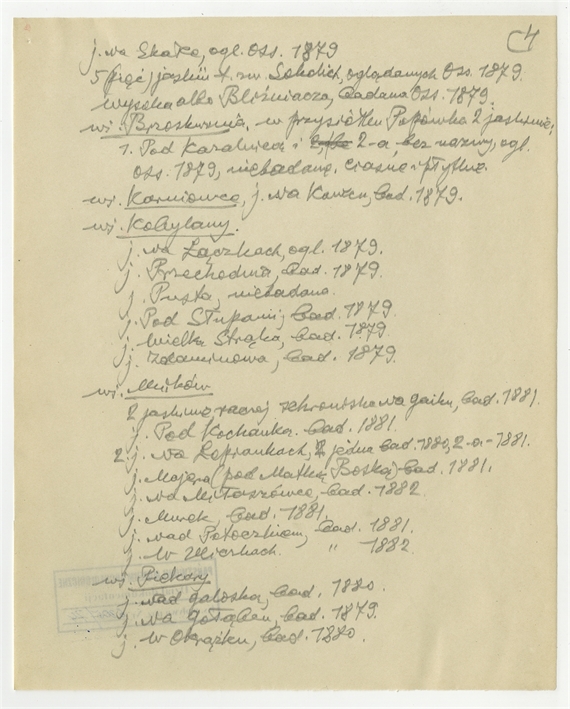 C4
j. na Skałce, ogl. Oss. 1879
5 (pięć) jaskiń t. zw. Sokolich, oglądanych Oss. 1879.
Wysoka albo Bliźniacza, badana Oss. 1879.
wś. Brzoskwinia, w przysiółku Popówka 2 jaskinie;
1. Pod Kazalnicą i 2-a bez nazwy, ogl.
Oss. 1879, niebadane, ciasne i płytkie.
wś. Karniowce, j. na Kawcu, bad. 1879.
wś. Kobylany.
j. na Łączkach, ogl. 1879.
j. Przechodnia, bad. 1879.
j. Pusta, niebadana.
j. Pod Słupami, bad. 1879
j. Wielka Strąka, bad. 1879.
j. bad. 1879.
wś. Mników
2 jaskinie raczej schroniska na Gaiku, bad. 1881.
j. Pod Kochanką bad. 1881.
2 j. na Łopiankach, jedna bad. 1880, 2-a - 1881.
j. Majera (pod Matką Boską) bad. 1881.
j. na Miłaszówce, bad. 1882.
j. Murek, bad. 1881.
j. nad Potoczkiem, bad. 1881.
j. W Zmierkach. " 1882
wś. Piekary
j. nad Galoską, bad. 1880.
j. na Gołąbcu, bad. 1879.
j. W Okrążku, bad. 1880.